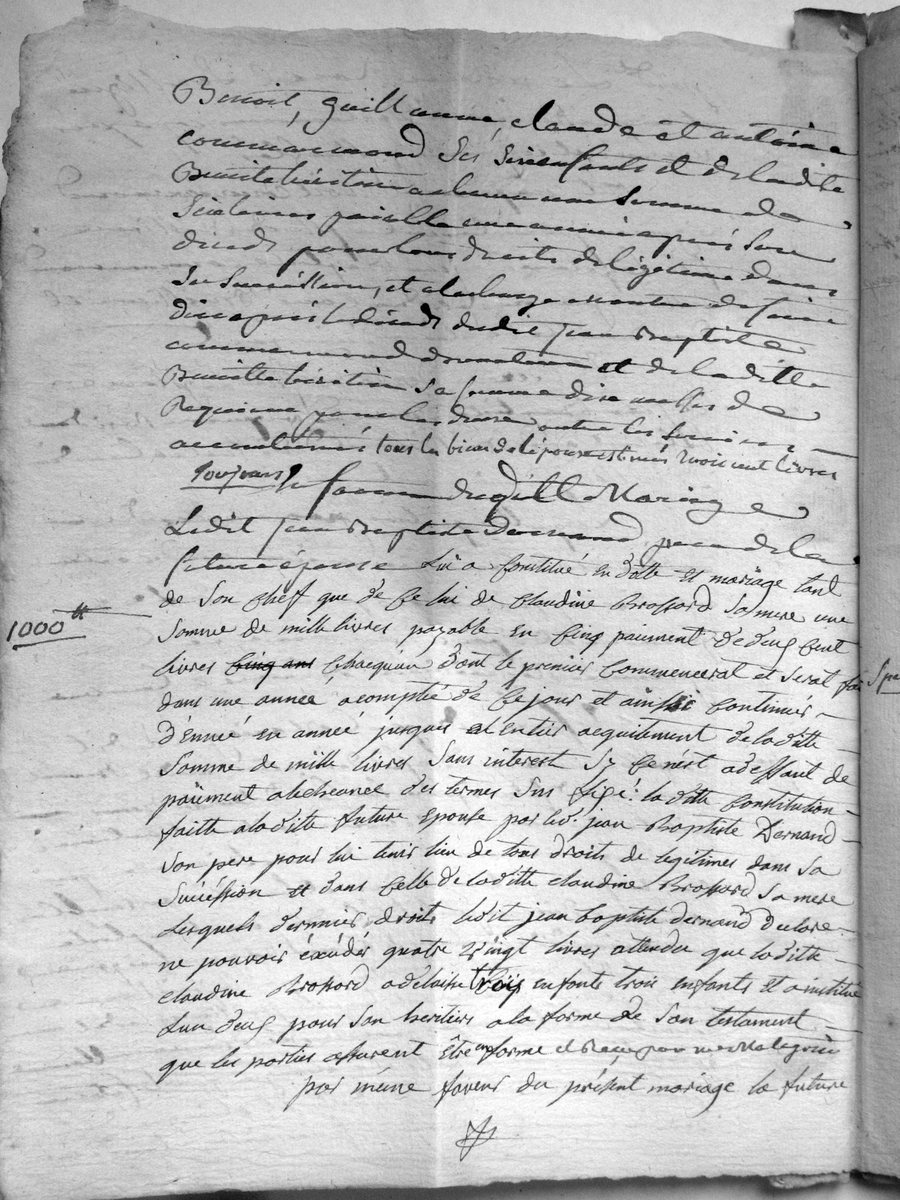 Benoit, guillaume, claude et antoine
commarmond Ses Six enfants et de ladite
Benoite a chacun une Somme de
Six livres paiable une année après Son
décéds pour tous droits de légitime dans
Sa Succéssion, et à la charge en outre de faire
dire après le décéds dudit jean Baptiste
commarmond donateur et de laditte
Benoitte Sa femme dix messes de
Requiem pour les deux outre les Services
accoutumés tous les biens de l'epoux estimés trois cent livres
Toujours En faveur duquel Mariage
Ledit jean Baptiste Dernand pere de la
future épouse Lui a Constitué en dotte et mariage tant
de Son Cheff que de Celui de Claudine Brossard Sa mere une
1000 ₶
Somme de mille livres payable en Cinq paiment de deux Cent
livres Cinq ans Chacquun dont le premier Commencerat et Serat fai
dans une année a compté de Ce jour et ainssi Continuér
d'ennée en année jusques a l'entier acquitement de laditte
Somme de mille livres Sans interest Sy Ce n'est a deffaut de
paiiment a lecheance des termes Sus fixé: la ditte Constitution
faitte a laditte future Epouse par led. jean Baptiste Dernand
Son pere pour lui tenir lieu de tous droits de legitimes dans Sa
Succéssion et dans Celle de laditte Claudine Brossard Sa mere
Lesquels dernniers droits ledit jean baptiste dernand declare
ne pouvoir éxcédér quatre vingt livres attendu que laditte
Claudine Brossard a delaissé trois enfants trois enfants et a institué
L'un d'eux pour Son heritier a la forme de Son testament
que les parties assurent Être en forme et Recu par
par méme faveur du présent mariage la future